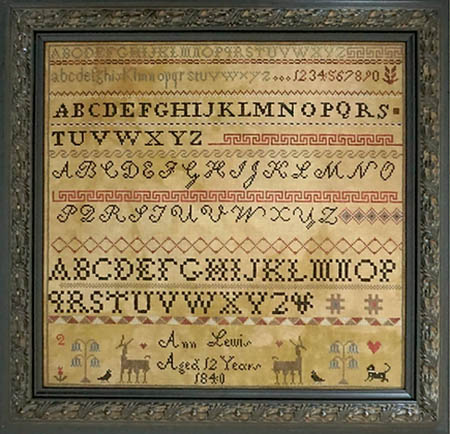 ABCDEFGHIJKLMNOPQRSTUVWXYZ
abcdefghijklmnopqrstuvwxyz 1234567890
ABCDEFGHIJKLMNOPQRS
TUVWXYZ
ABCDEFGHIJKLMNO
PQRSTUVWXYZ
ABCDEFGHIJKLMNOP
QRSTUVWXYZ
2
Ann Lewis
Aged 12 Years
1840